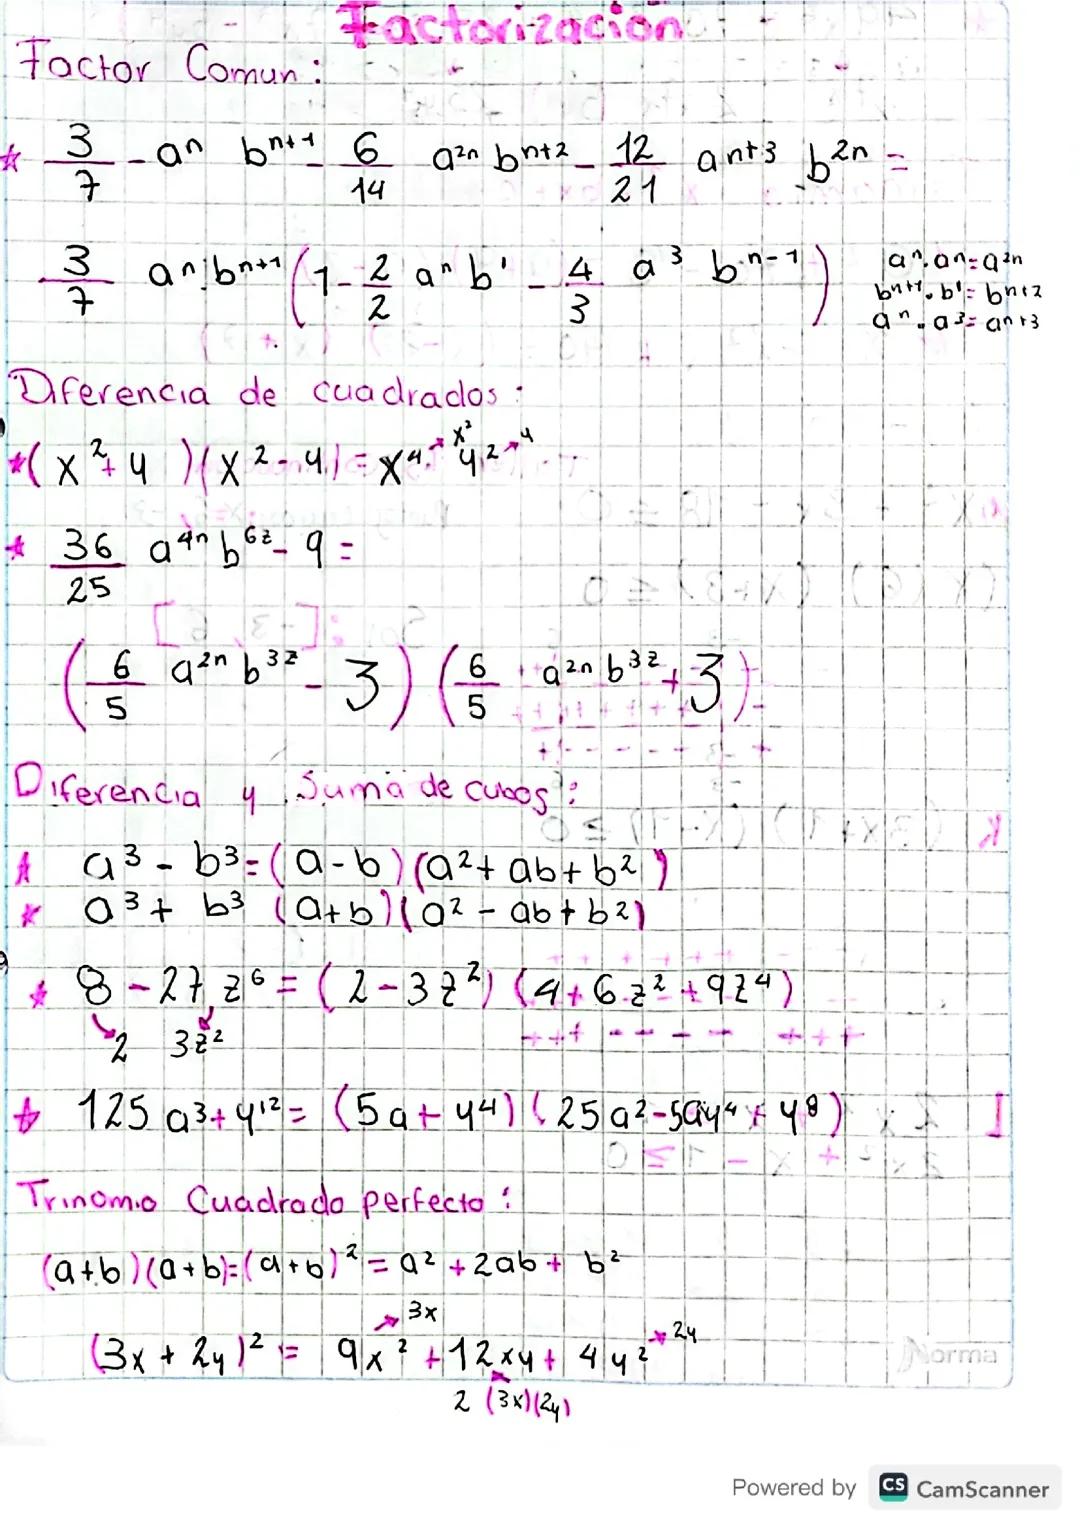 Factorización
Factor Comun:
* 3/7 - aⁿ bⁿ⁺¹ - 6/14 a²ⁿ bⁿ⁺² - 12/21 aⁿ⁺³ . b²ⁿ =
3/7 aⁿ . bⁿ⁺¹ (1 - 2/2 aⁿ b¹ - 4/3 a³ bⁿ⁻¹)
aⁿ . aⁿ = a²ⁿ
bⁿ⁺¹ . b¹ = bⁿ⁺²
aⁿ . a³ = aⁿ⁺³
Diferencia de cuadrados:
* (x² + 4)(x² - 4) = x⁴ → x² - 4² → 4
* 36/25 a⁴ⁿ b⁶ᶻ - 9 =
(6/5 a²ⁿ b³ᶻ - 3) (6/5 a²ⁿ b³ᶻ + 3)
Diferencia y Suma de cubos:
* a³ - b³ = (a - b)(a² + ab + b²)
* a³ + b³ (a + b)(a² - ab + b²)
* 8 - 27 z⁶ = (2 - 3z²) (4 + 6z² + 9z⁴)
2 3z²
* 125 a³ + y¹² = (5a + y⁴) (25a² - 5ay⁴ + y⁸)
Trinomio Cuadrado perfecto:
(a + b)(a + b) = (a + b)² = a² + 2ab + b²
3x 2y
(3x + 2y)² = 9x² + 12xy + 4y²
2 (3x)(2y)
Norma
Powered by CS CamScanner